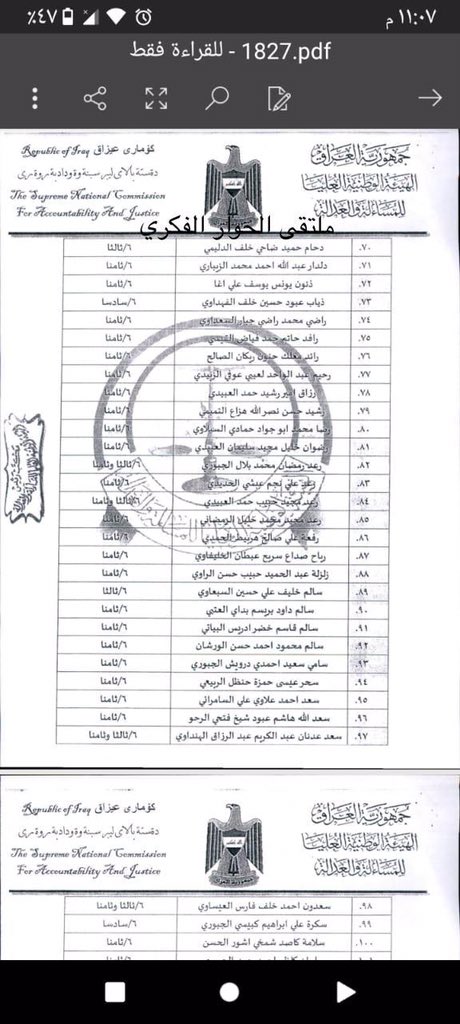 ١١:٠٧ م
٪٤٧
1827.pdf - للقراءة فقط
جمهورية العراق
الهيئة الوطنية العليا
للمساءلة والعدالة
كۆماری عیراق Republic of Iraq
The Supreme National Commission
For Accountability And Justice
ملتقى الحوار الفكري
٧٠. دحام حميد ضاحي خلف الدليمي ٦/ثالثا
٧١. دلدار عبد الله احمد محمد الزيباري ٦/ثامنا
٧٢. ذنون يونس يوسف علي اغا ٦/ثامنا
٧٣. ذياب عبود حسين خلف الفهداوي ٦/سادسا
٧٤. راضي محمد راضي جبار السعداوي ٦/ثامنا
٧٥. رافد حاتم حمد فياض القيسي ٦/ثامنا
٧٦. رائد معلك حنون ريكان الصالح ٦/ثامنا
٧٧. رحيم عبد الواحد لعيبي عوفي الزبيدي ٦/ثامنا
٧٨. رزاق امير رشيد حمد العبيدي ٦/ثامنا
٧٩. رشيد حسن نصر الله هزاع التميمي ٦/ثامنا
٨٠. رضا محمد ابو جواد حمادي السيلاوي ٦/ثامنا
٨١. رضوان خليل مجيد سليمان العبيدي ٦/ثامنا
٨٢. رعد رمضان محمد بلال الجبوري ٦/ثالثا وثامنا
٨٣. رعد علي نجم عيشي الحديدي ٦/ثامنا
٨٤. رعد مجيد حبيب حمد العبيدي ٦/ثالثا وثامنا
٨٥. رعد محمد محمد خليل الرمضاني ٦/ثامنا
٨٦. رفعة علي صالح هربيط الحمدي ٦/ثامنا
٨٧. رياح صداع سريح عبطان الخليفاوي ٦/ثامنا
٨٨. زلزلة عبد الحميد حبيب حسن الراوي ٦/ثامنا
٨٩. سالم خليف علي حسين السبعاوي ٦/ثالثا
٩٠. سالم داود بريسم بداي العتبي ٦/ثامنا
٩١. سالم قاسم خضر ادريس البياتي ٦/ثامنا
٩٢. سالم محمود احمد حسن الورشان ٦/ثامنا
٩٣. سامي سعيد احمدي درويش الجبوري ٦/ثامنا
٩٤. سحر عيسى حمزة حنظل الربيعي ٦/ثامنا
٩٥. سعد احمد علاوي علي السامرائي ٦/ثامنا
٩٦. سعد الله هاشم عبود شيخ فتحي الرحو ٦/ثامنا
٩٧. سعد عدنان عبد الكريم عبد الرزاق الهنداوي ٦/ثالثا وثامنا
جمهورية العراق
الهيئة الوطنية العليا
للمساءلة والعدالة
كۆماری عیراق Republic of Iraq
The Supreme National Commission
For Accountability And Justice
٩٨. سعدون احمد خلف فارس العيساوي ٦/ثالثا وثامنا
٩٩. سكرة علي ابراهيم كبيسي الجبوري ٦/سادسا
١٠٠. سلامة كاصد شمخي اشور الحسن ٦/ثامنا